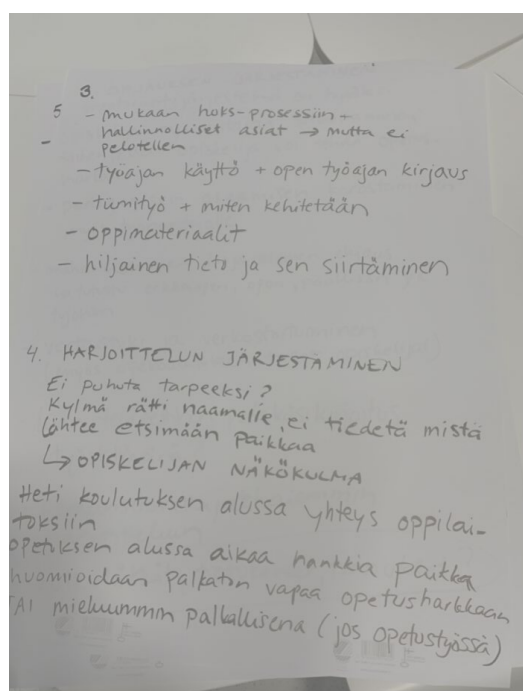 3.
5 - mukaan hoks-prosessiin +
hallinnolliset asiat → mutta ei
- pelotellen
- työajan käyttö + open työajan kirjaus
- tiimityö + miten kehitetään
- oppimateriaalit
- hiljainen tieto ja sen siirtäminen
4. HARJOITTELUN JÄRJESTÄMINEN
Ei puhuta tarpeeksi?
Kylmä rätti naamalle, ei tiedetä mistä
lähtee etsimään paikkaa
↳ OPISKELIJAN NÄKÖKULMA
Heti koulutuksen alussa yhteys oppilai-
toksiin
opetuksen alussa aikaa hankkia paikka
huomioidaan palkaton vapaa opetusharkkaan
TAI mieluummin palkallisena (jos opetustyössä)